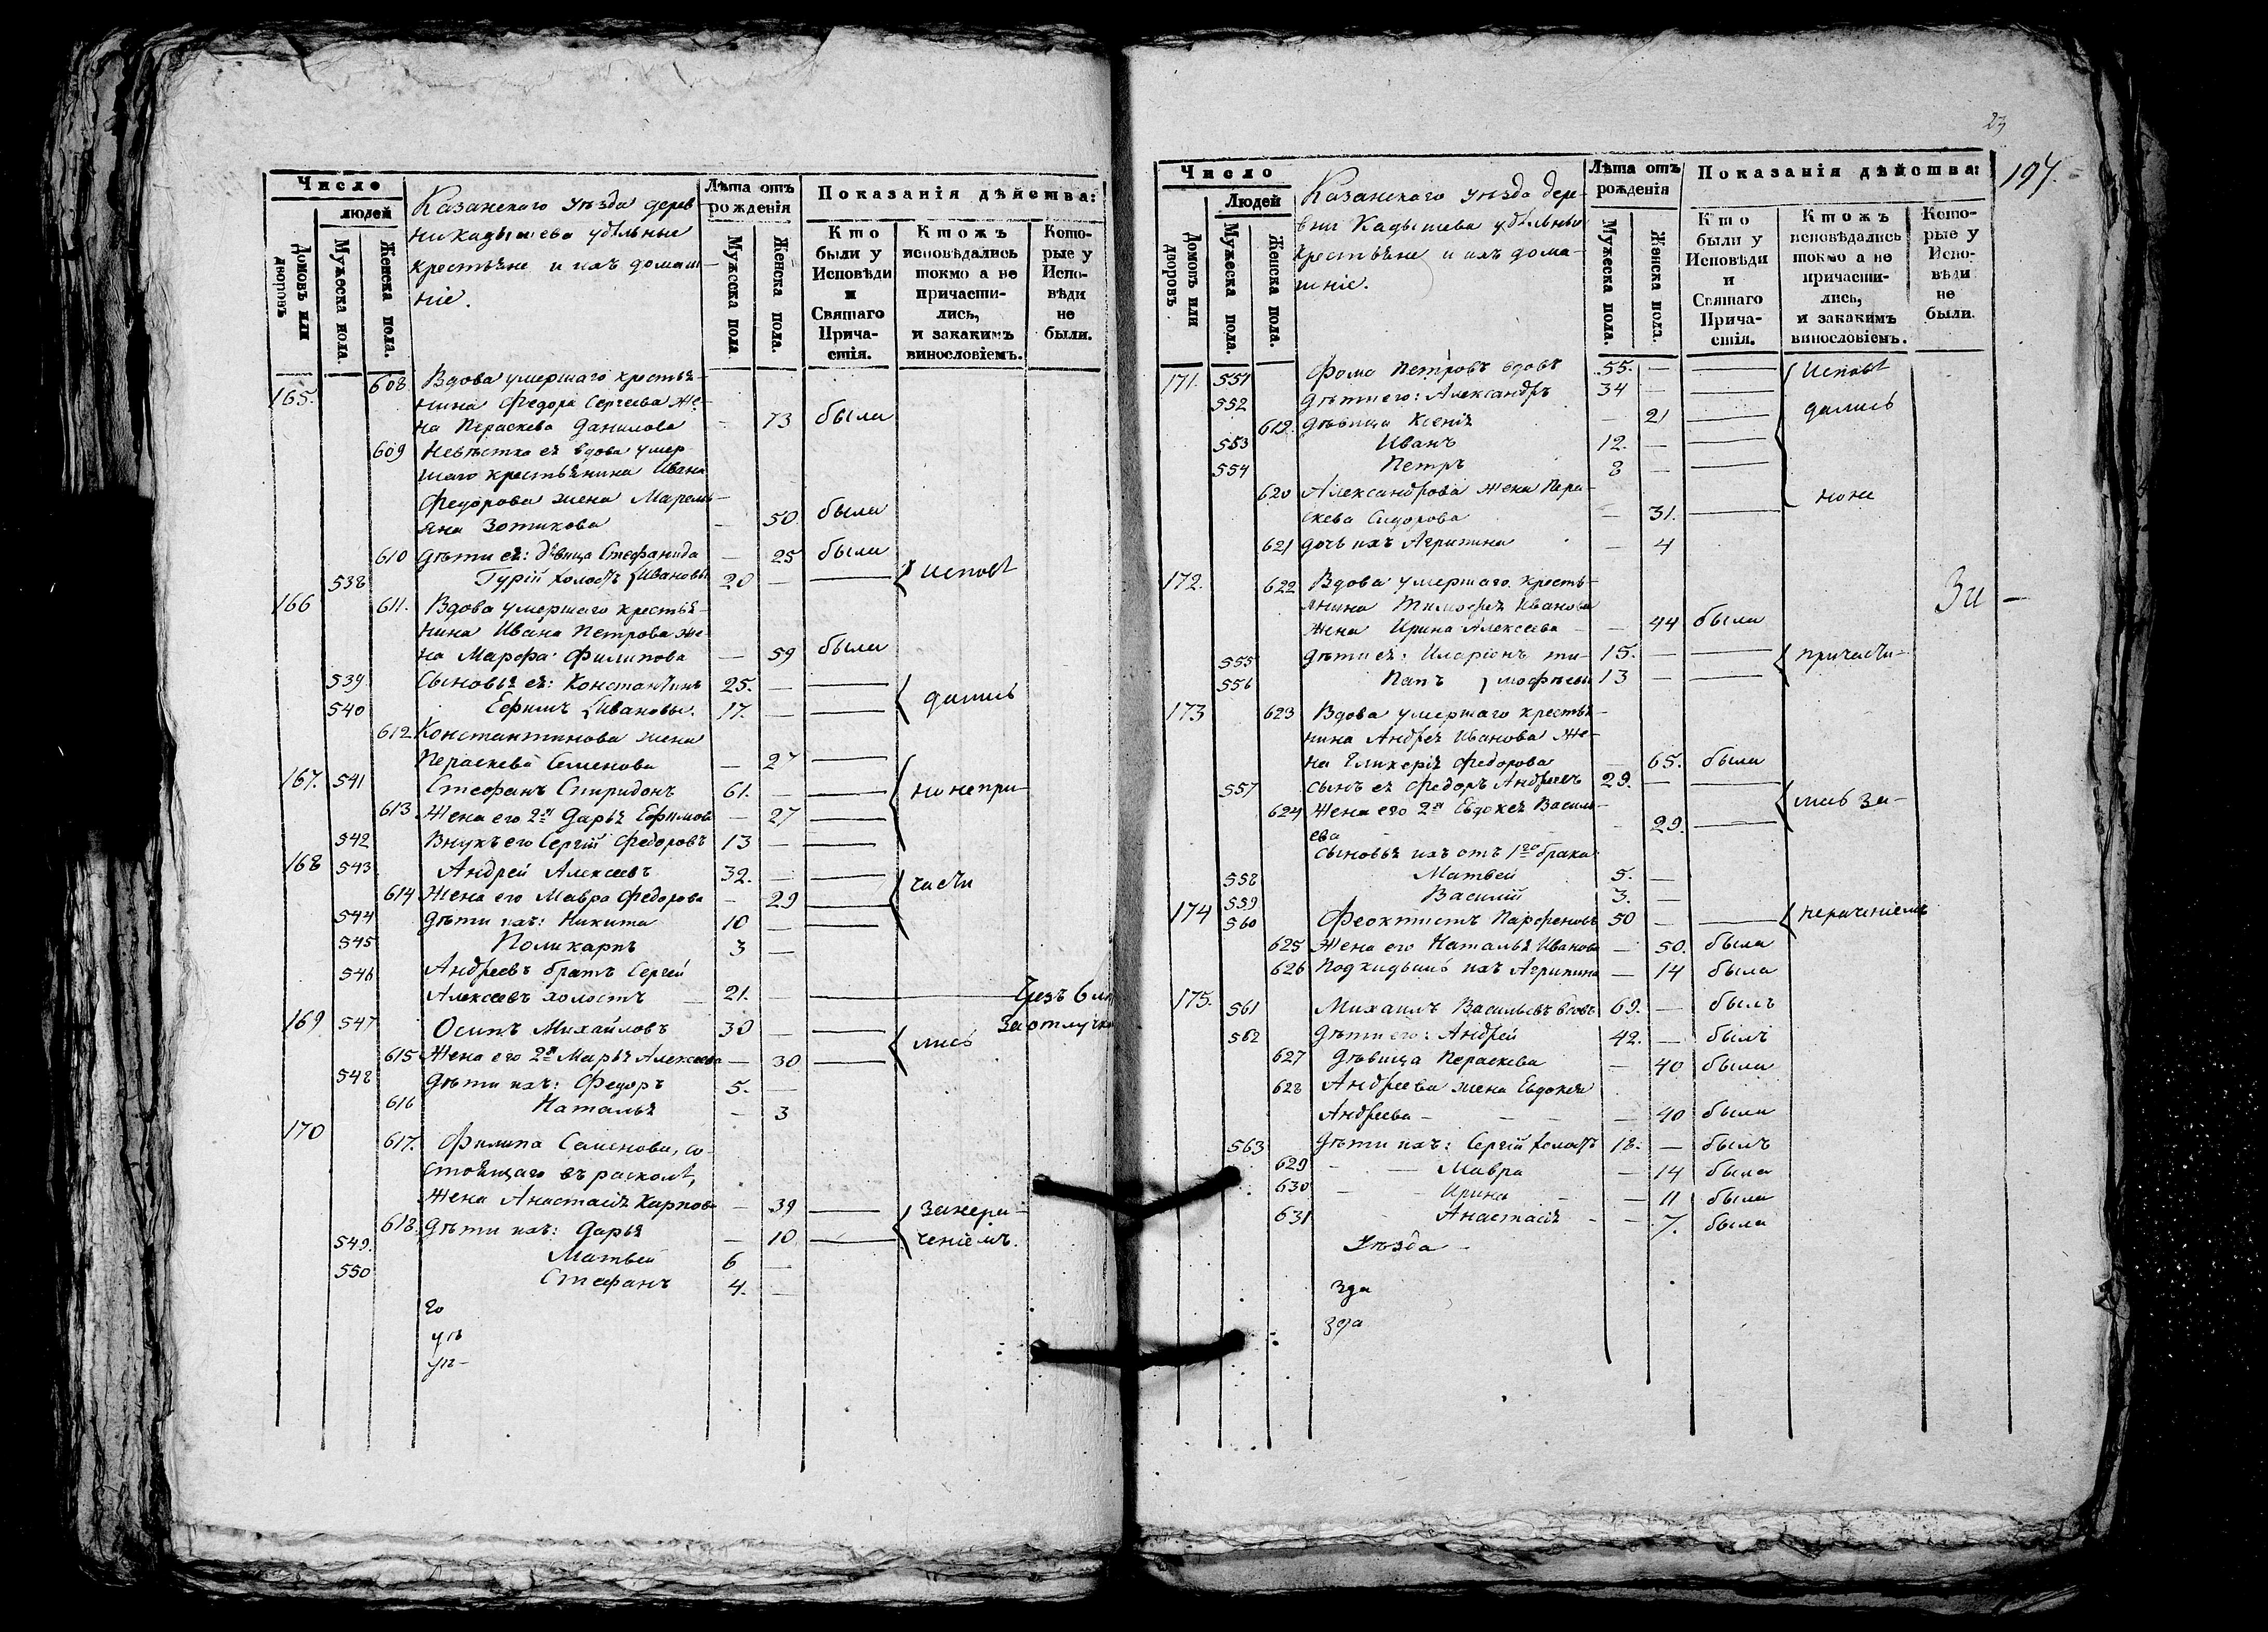 Число
людей
Домовъ или дворовъ
Мужеска пола.
Женска пола.
Казанского Уѣзда дерев
ни Кадышева удѣльные
крестьяне и ихъ домаш-
ніе.
Лѣта отъ
рожденія
Мужеска пола
Женска пола.
Показанія дѣйства:
Кто
были у
Исповѣди
и
Святаго
Прича-
стія.
Ктожъ
исповѣдались
токмо а не
причасти-
лись,
и закакимъ
винословіемъ.
Кото-
рые у
Испо-
вѣди
не
были.
165. 608. Вдова умершаго крестья-
нина Федора Сергеева же-
на Параскева Данилова - 73 была
609 Невѣстка ея вдова умер
шаго крестьянина Ивана
Федорова жена Мареми-
яна Зотикова - 50. была
610 Дѣти ея: дѣвица Стефанида - 25 была
538 Гурій холостъ } Ивановы 20 - — { исповѣ
166 611. Вдова умершаго крестья-
нина Ивана Петрова же-
на Марфа Филипова — 59 была
539 Сыновья ея: Константинъ 25. - —
540 Ефимъ { Ивановы. 17. - — { дались
612 Константинова жена
Параскева Семенова — 27 —
167. 541 Стефанъ Спиридонъ 61. - — { но непри-
613 Жена его 2я Дарья Ефимова — 27 —
542 Внукъ его Сергій Федоровъ 13 — —
168 543. Андрей Алексеевъ 32. - —
614 Жена его Мавра Федорова - 29 — { части
544 Дѣти ихъ: Никита 10 — —
545 Поликарпъ 3 —
546 Андреевъ братъ Сергей
Алексеевъ холостъ 21. - — Чрезъ 6 лѣ
За отлучк
169 547 Осипъ Михайловъ 30 — —
615 Жена его 2я Марья Алексеева — 30 — { лись
548 Дѣти ихъ: Федоръ 5. —
616 Наталья - 3
170 617. Филипа Семенова, со-
стоящаго въ расколѣ,
жена Анастасія Карпова - 39 — { занера-
618. Дѣти ихъ: Дарья — 10 — ченіемъ.
549. Матвей 6 —
550 Стефанъ 4. —
го
уѣ
уѣ-
23
197.
Число
Людей
Домовъ или дворовъ
Мужеска пола.
Женска пола.
Казанского Уѣзда дере-
вни Кадышева удѣльны
крестьяне и ихъ дома-
шніе.
Лѣта отъ
рожденія
Мужеска пола.
Женска пола.
Показанія дѣйства:
Кто
были у
Исповѣди
и
Святаго
Прича-
стія.
Ктожъ
исповѣдались
токмо а не
причасти-
лись,
и закакимъ
винословіемъ.
Кото-
рые у
Испо-
вѣди
не
были.
171. 551 Фома Петровъ вдовъ 55. — — { исповѣ
552 Дѣти его: Александръ 34 — —
619. Дѣвица Ксенія — 21 — дались
553 Иванъ 12. — —
554 Петръ 8 — —
620 Александрова жена Пара-
скева Сидорова — 31. — но не
621 дочь ихъ Агрипина — 4
172. 622 Вдова умершаго кресть-
янина Тимофея Иванова
жена Ирина Алексеева — 44 была
555 Дѣти ея: Иларіонъ ти- 15. — —
556 Папъ } мофѣевы 13 — — { причасти-
173 623 Вдова умершаго крестья-
нина Андрея Иванова же-
на Гликерія Федорова — 65. была
557 сынъ ея Федоръ Андреевъ 29. — —
624 Жена его 2я Евдокея Василь- { лись за-
ева - 29. —
сыновья ихъ отъ 1го брака
558 Матвей 5. —
559 Василій 3. —
174 560 Феоктистъ Парфеновъ 50 — — { нераченіемъ
625 Жена его Наталья Иванова — 50. была
626 Подкидышъ ихъ Агрипина — 14 была
175. 561 Михаилъ Васильевъ вдовъ 69. — былъ
562 Дѣти его: Андрей 42. — былъ
627 Дѣвица Параскева — 40 была
628 Андреева жена Евдокея
Андреева — — — — 40 была
563 Дѣти ихъ: Сергій холостъ 18. — былъ
629 - — Мавра — 14 была
630 — Ирина — — 11 была
631 Анастасія - — 7. была
Уѣзда -
зда
зда